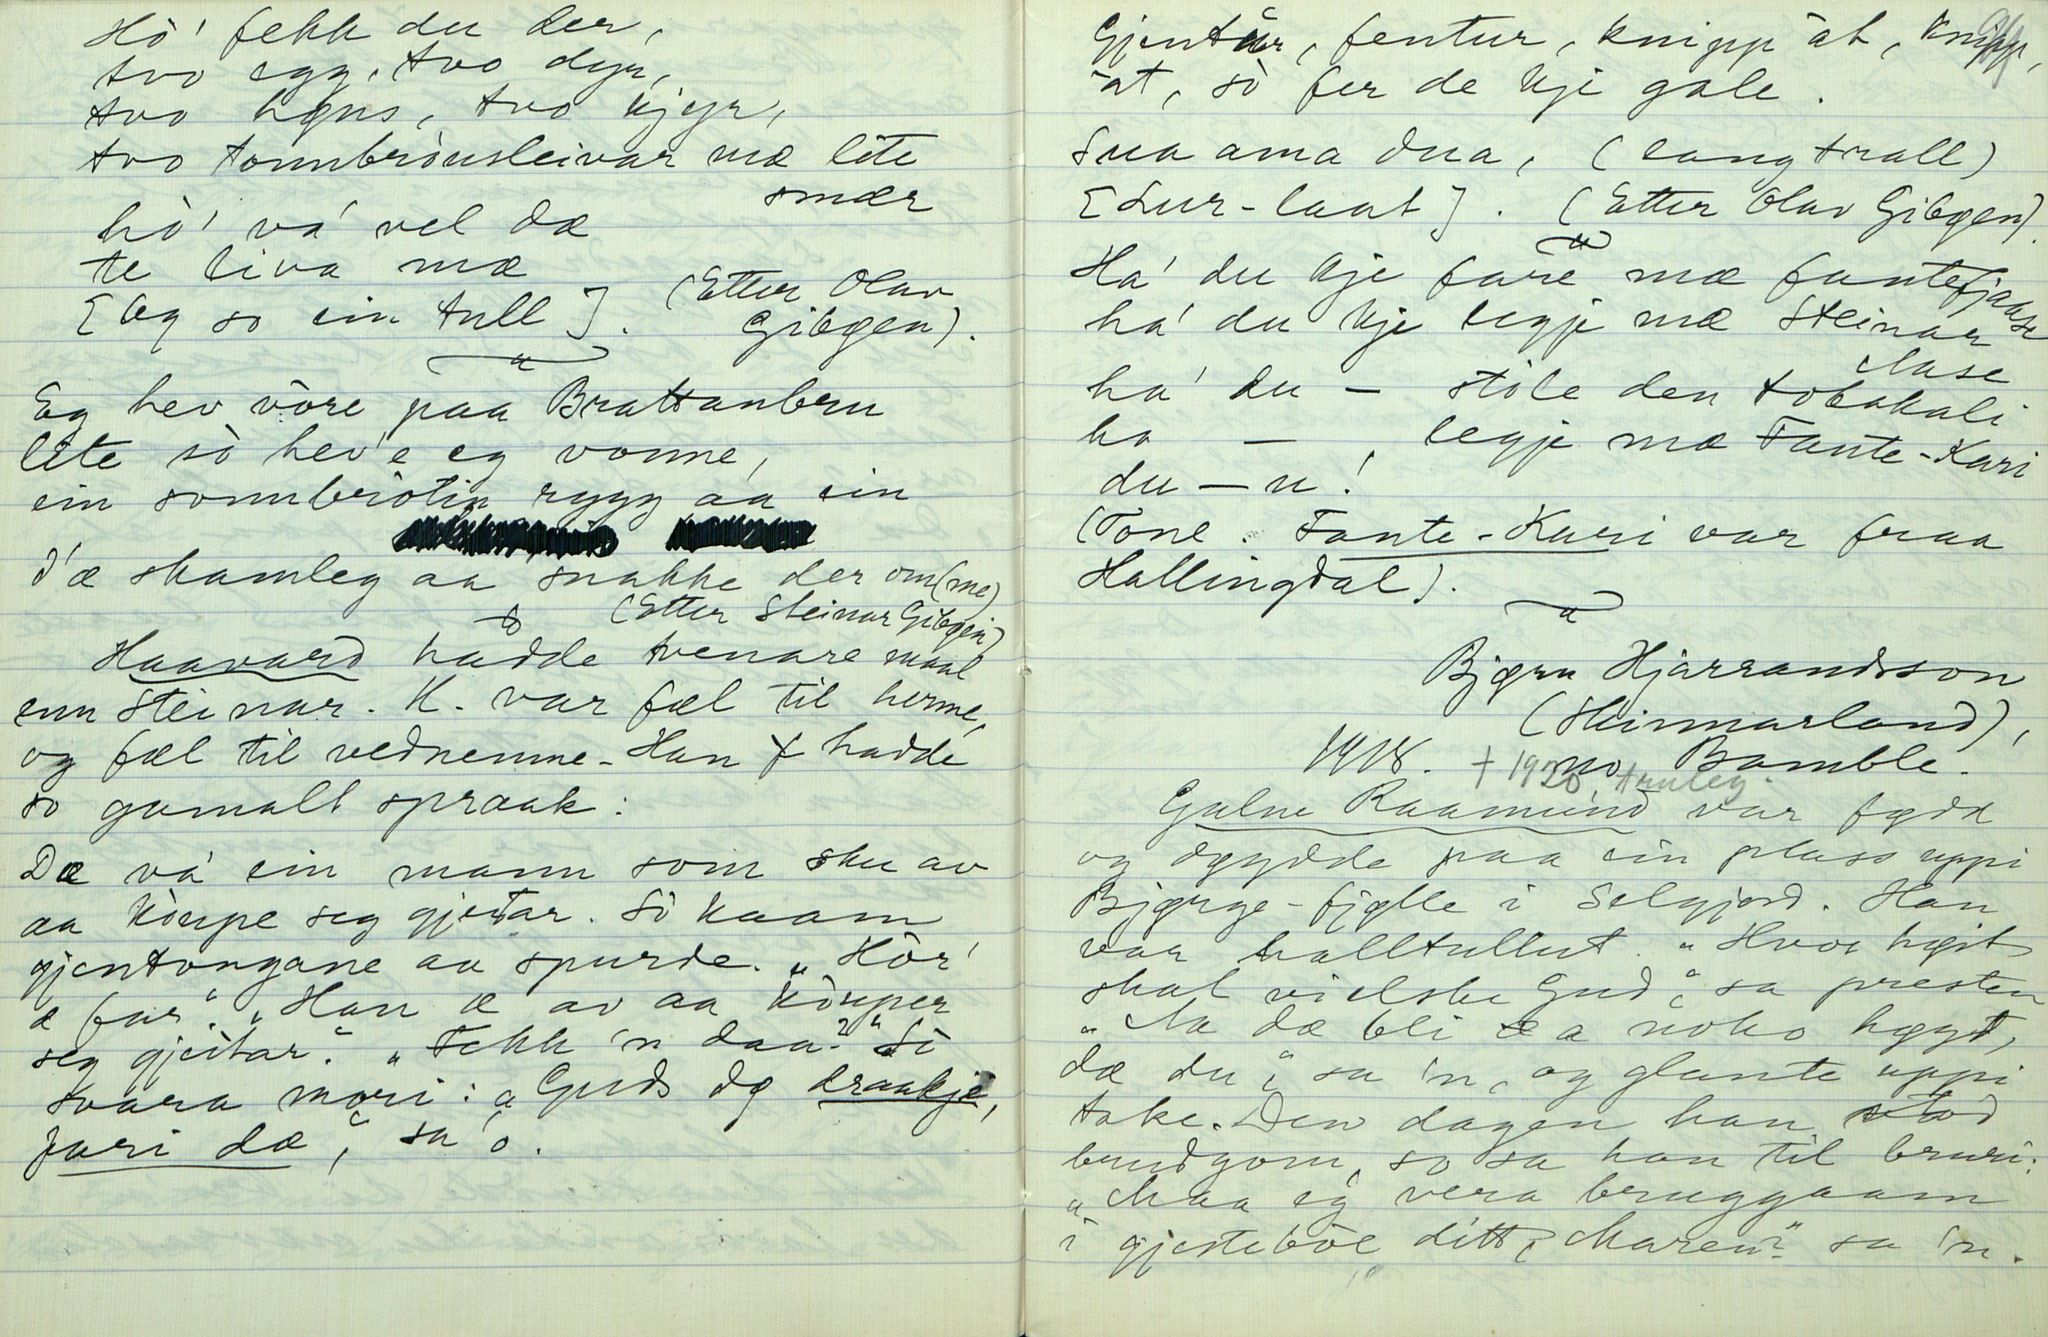 Hò' fekk du der,
tvo egg, tvo dyr,
tvo høns, tvo kjyr,
tvo tonnbrò'usleivar mæ lite
smær
hò' vá vel dæ
te liva mæ
[Og so ein tull]. (Etter Olav
Gibøen).
Eg hev vòre paa Brattanbru
lite sò hev'e eg vonne,
ein sonnbròtin rygg aa ein
d'æ skamleg aa snakke der om(me)
(Etter Steinar Gibøen)
Haavard hadde svenare maal
enn Steinar. H. var fæl til herme,
og fæl til vednemne. Han hadde
so gamalt spraak:
Dæ vá ein mann som sku av
aa kòupe seg gjeitar. Sò kaam
gjentongane aa spurde. „Hòr'
æ far“. „Han æ av aa kòuper
seg gjeitar“. „Fekk 'n daa?“ Sò
svara mori: „Guds dø draakje,
fari dæ“, sa 'o.
Gjentur, fentur, knipp át, knipp
át, sò fer de kje gale.
Sua ama dua, (lang trall)
[Lur-laat]. (Etter Olav Gibøen).
Há' du kje fare mæ fantefjaase
há' du kje legje mæ Steinar
Aase
há' du — stòle den tobakali
ha — legje mæ Fante-Kari
du — u!
(Tone. Fante-Kari var fraa
Hallingdal).
Bjørn Hjarrandsson
(Skinnarland),
1918. no Bamble.
† 1920, truleg.
Galne Raamund var fødd
og døydde paa ein plass uppi
Bjørge-fjølle i Selgjord. Han
var halltullut. „Hvor høit
skal vi elske Gud“, sa presten
„Aa dæ bli æ a noko høgt,
dæ du“, sa 'n, og glante uppi
take. Den dagen han stod
brudgom, so sa han til bruri:
„Maa eg vera bruggaam
i gjesteboe ditt, Maren?“ sa 'n.